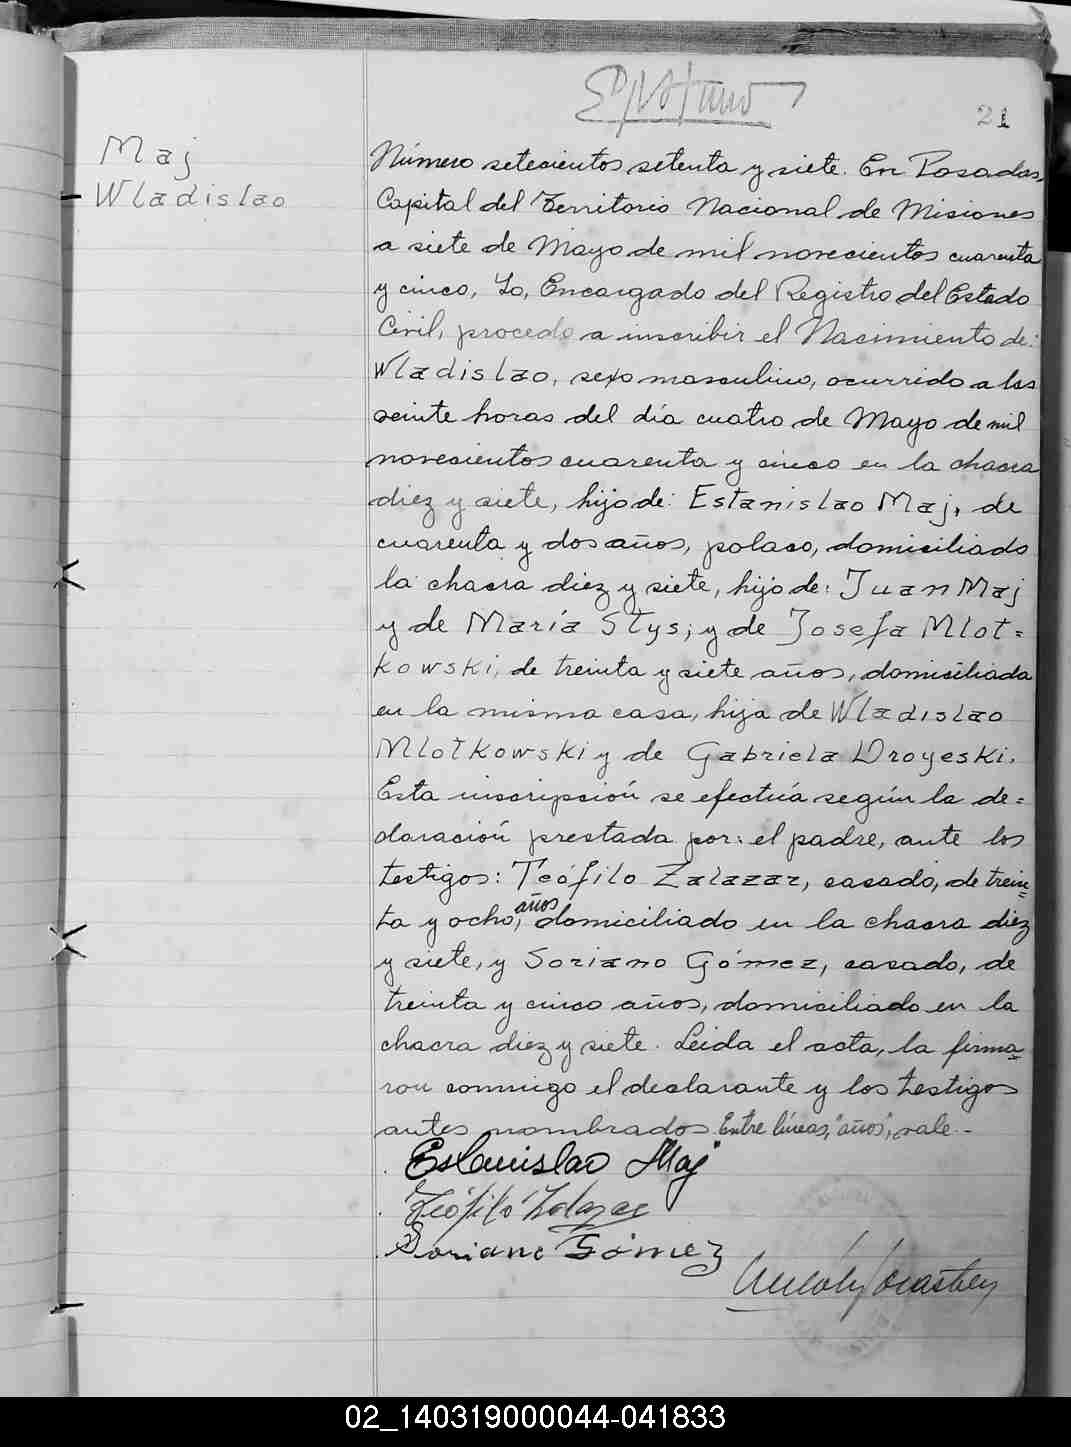 21
Maj
Wladislao
Número setecientos setenta y siete. En Posadas,
Capital del Territorio Nacional de Misiones
a siete de Mayo de mil novecientos cuarenta
y cinco, Yo, Encargado del Registro del Estado
Civil, procedo a inscribir el Nacimiento de:
Wladislao, sexo masculino, ocurrido a las
veinte horas del día cuatro de Mayo de mil
novecientos cuarenta y cinco en la chacra
diez y siete, hijo de: Estanislao Maj, de
cuarenta y dos años, polaco, domiciliado
la chacra diez y siete, hijo de: Juan Maj
y de María Stys; y de Josefa Mlot=
kowski, de treinta y siete años, domiciliada
en la misma casa, hija de Wladislao
Mlotkowski y de Gabriela Droyeski.
Esta inscripción se efectúa según la de=
claración prestada por: el padre, ante los
testigos: Teófilo Zalazar, casado, de trein=
ta y ocho, años domiciliado en la chacra diez
y siete, y Soriano Gómez, casado, de
treinta y cinco años, domiciliado en la
chacra diez y siete. Leida el acta, la firma=
ron conmigo el declarante y los testigos
antes nombrados. Entre líneas, "años", vale.-
Estanislao Maj
Teófilo Zalazar
Soriano Gómez
02_140319000044-041833